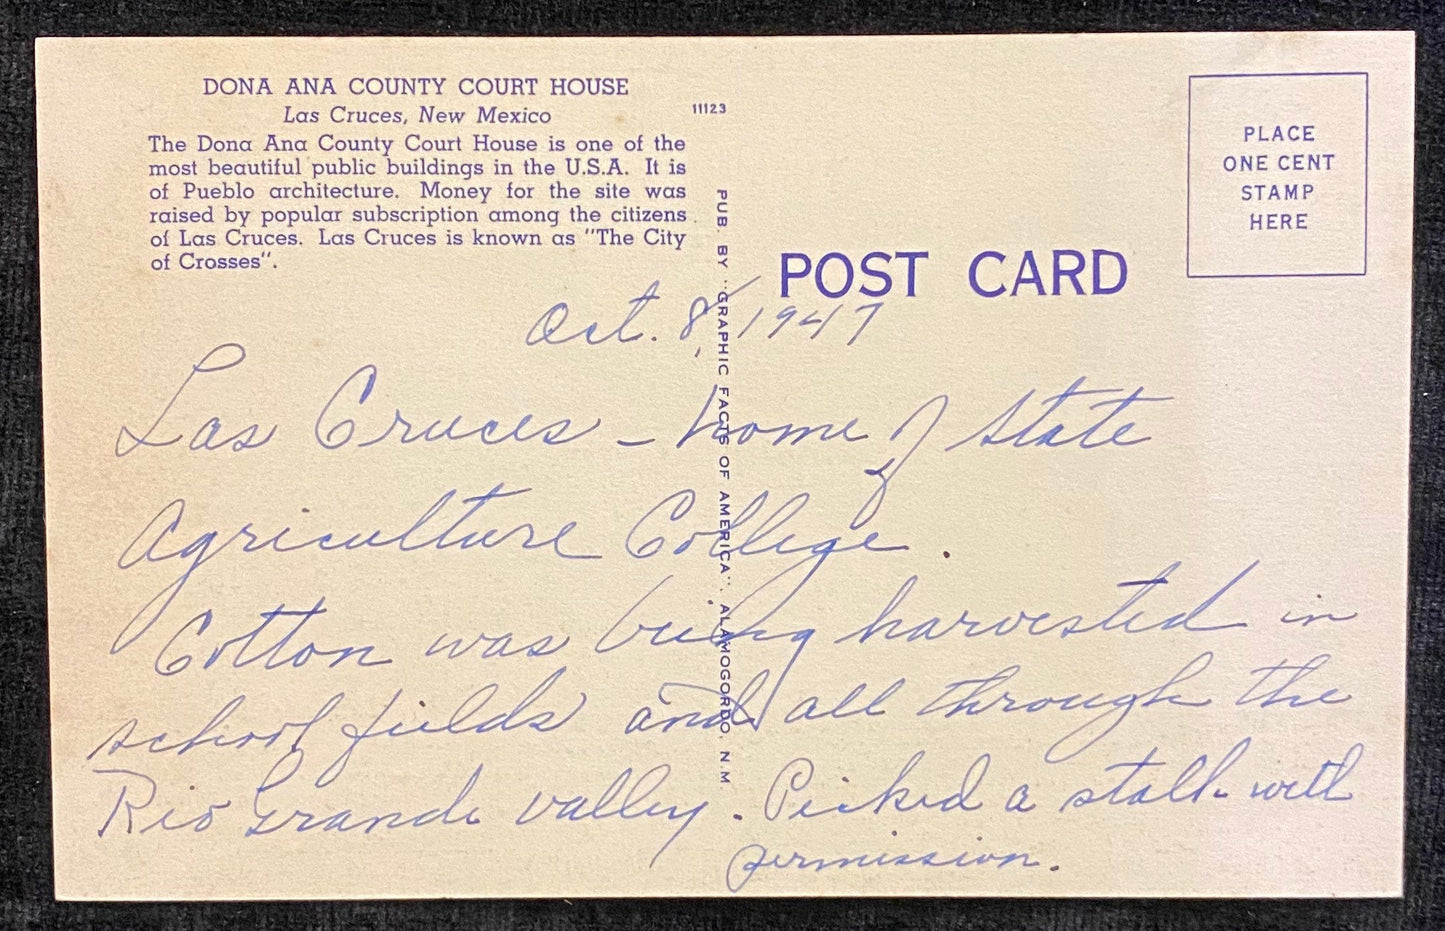 DONA ANA COUNTY COURT HOUSE
Las Cruces, New Mexico
The Dona Ana County Court House is one of the
most beautiful public buildings in the U.S.A. It is
of Pueblo architecture. Money for the site was
raised by popular subscription among the citizens
of Las Cruces. Las Cruces is known as "The City
of Crosses".
11123
PUB. BY "GRAPHIC FACTS OF AMERICA", ALAMOGORDO, N.M.
POST CARD
PLACE
ONE CENT
STAMP
HERE
Oct. 8, 1947
Las Cruces - home of State
Agriculture College.
Cotton was being harvested in
school fields and all through the
Rio Grande valley. Picked a stalk with
permission.